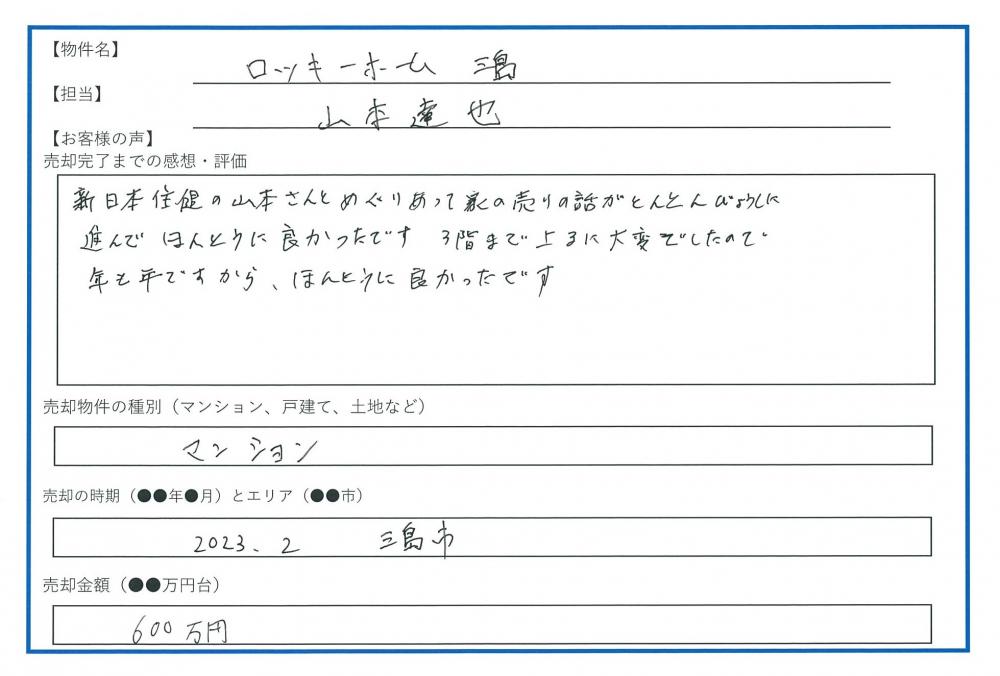 【物件名】
ロッキーホーム 三島
【担当】
山本達也
【お客様の声】
売却完了までの感想・評価
新日本住建の山本さんとめぐりあって家の売りの話がとんとんびょうしに
進んでほんとうに良かったです 3階まで上るに大変でしたので
年も年ですから、ほんとうに良かったです
売却物件の種別（マンション、戸建て、土地など）
マンション
売却の時期（●●年●月）とエリア（●●市）
2023.2 三島市
売却金額（●●万円台）
600万円